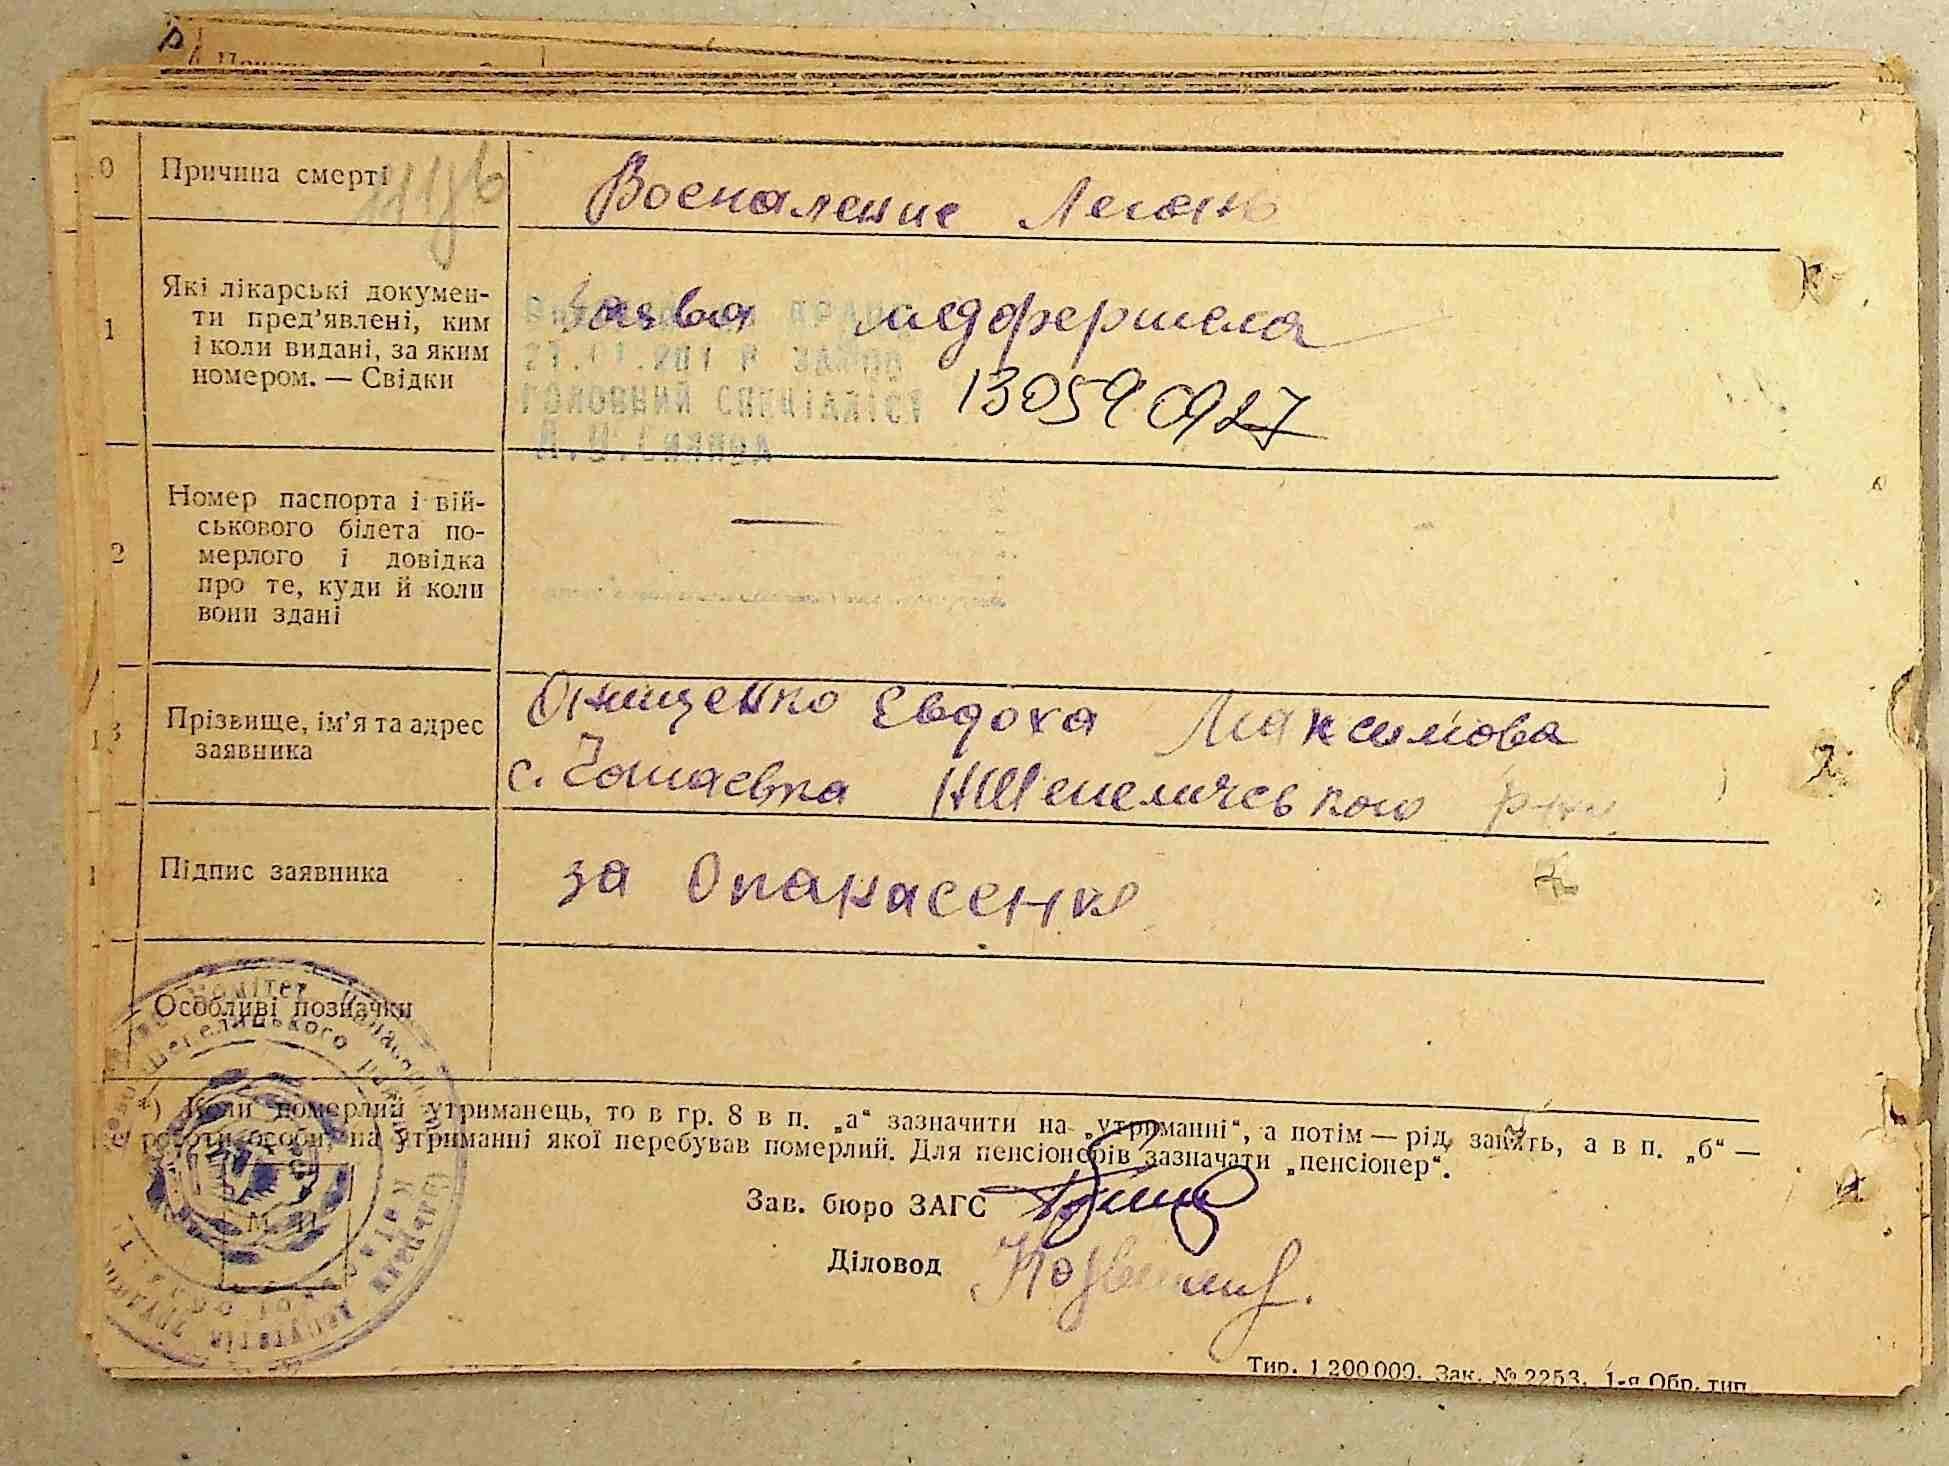 0 Причина смерті
Воспаление Легань
1 Які лікарські докумен-
ти пред’явлені, ким
і коли видані, за яким
номером. — Свідки
Заява медфершела
ГОЛОВНИЙ СПЕЦІАЛІСТ
13059 0927
2 Номер паспорта і вій-
ськового білета по-
мерлого і довідка
про те, куди й коли
вони здані
—
13 Прізвище, ім’я та адрес
заявника
Онищенко Евдоха Максимова
с. Чотаевка НШепеличського р-ну
1 Підпис заявника
за Опанасенко
Особливі позначки
*) Коли померлий утриманець, то в гр. 8 в п. „а“ зазначити на „утриманні“, а потім — рід занять, а в п. „б“ —
роботи особи, на утриманні якої перебував померлий. Для пенсіонерів зазначати „пенсіонер“.
М. П.
Зав. бюро ЗАГС
Діловод
Тир. 1 200 000. Зак. № 2253. 1-я Обр. тип